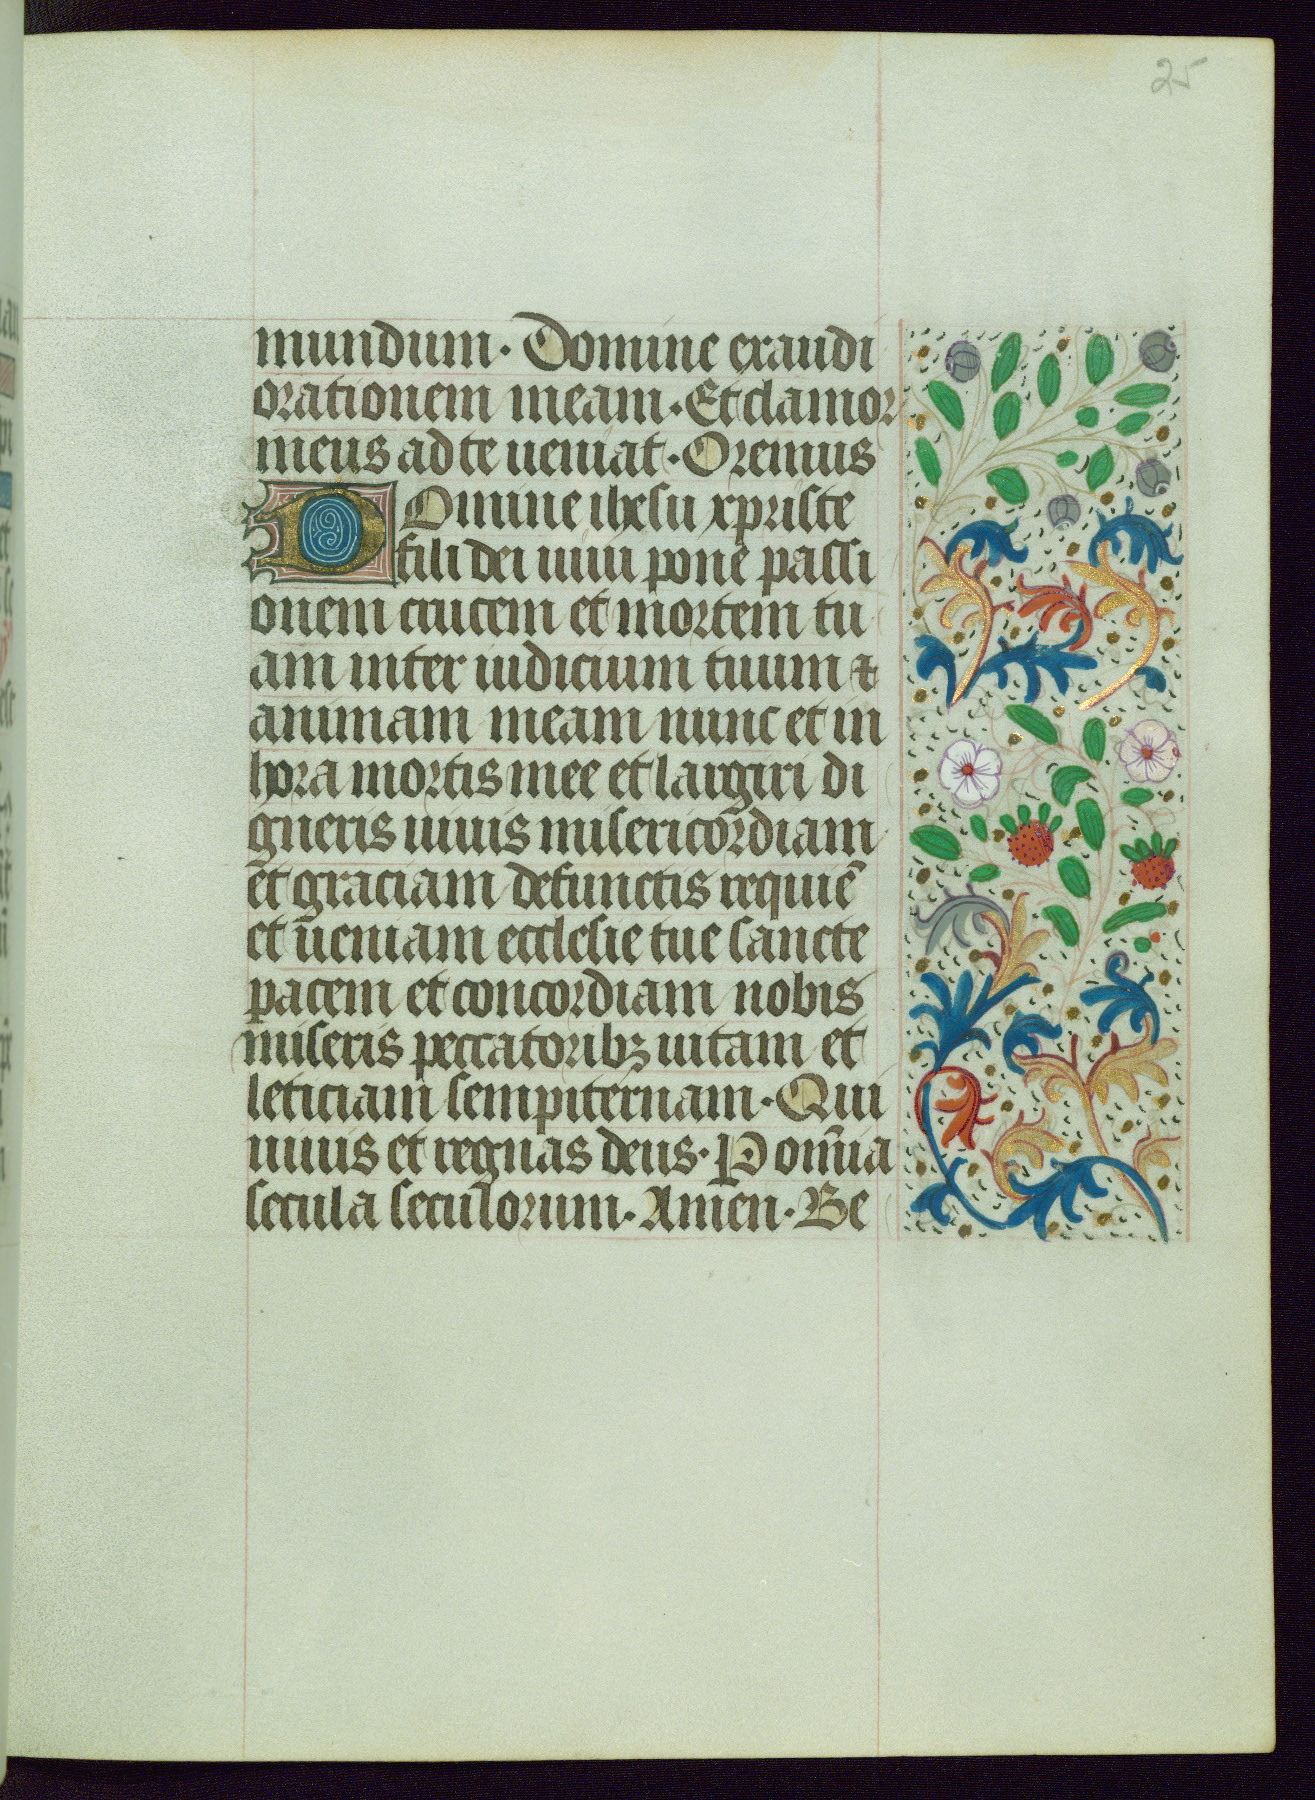 25
mundum. Domine exaudi
orationem meam. Et clamor
meus ad te ueniat. Oremus
Domine ihesu xpriste
fili dei uiui pone passi
onem crucem et mortem tu
am inter iudicium tuum ⁊
animam meam nunc et in
hora mortis mee et largiri di
gneris uiuis misericordiam
et graciam defunctis requiē
et ueniam ecclesie tue sancte
pacem et concordiam nobis
miseris peccatoribꝫ uitam et
leticiam sempiternam. Qui
uiuis et regnas deus. P om̄ia
secula seculorum. Amen. Be